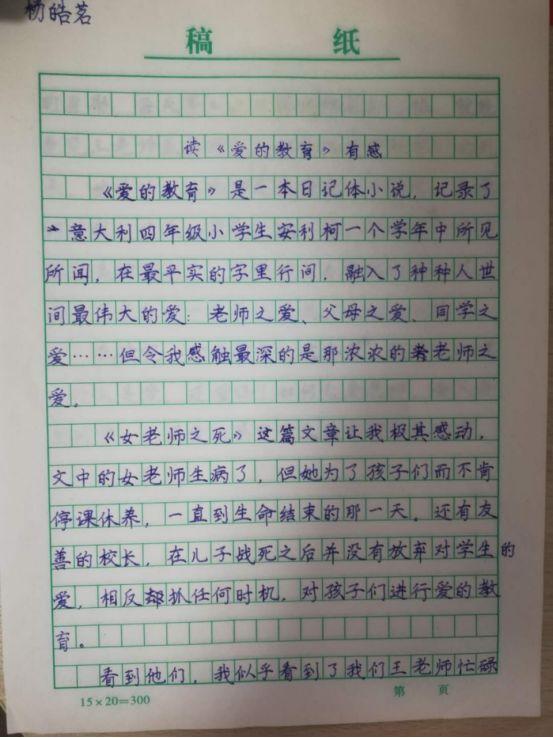 杨皓茗
稿 纸
读《爱的教育》有感
《爱的教育》是一本日记体小说，记录了
意大利四年级小学生安利柯一个学年中所见
所闻，在最平实的字里行间，融入了种种人世
间最伟大的爱：老师之爱、父母之爱、同学之
爱……但令我感触最深的是那浓浓的老师之
爱。
《女老师之死》这篇文章让我极其感动，
文中的女老师生病了，但她为了孩子们而不肯
停课休养，一直到生命结束的那一天。还有友
善的校长，在儿子战死之后并没有放弃对学生的
爱，相反却抓任何时机，对孩子们进行爱的教
育。
看到他们，我似乎看到了我们王老师忙碌
15×20=300 第 页